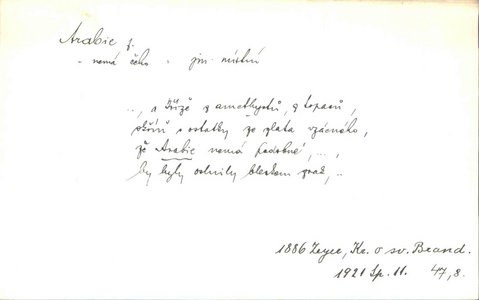 Arabie f.
- nemá čeho - jm. místní
..., a růže z amethystů, z topasů,
skříně s ostatky ze zlata vzácného,
že Arabie nemá podobné, ...,
by byly oslnily bleskem zrak, ..
1886 Zeyer, Kr. o sv. Brand.
1921 Sp. 11. 47, 8.